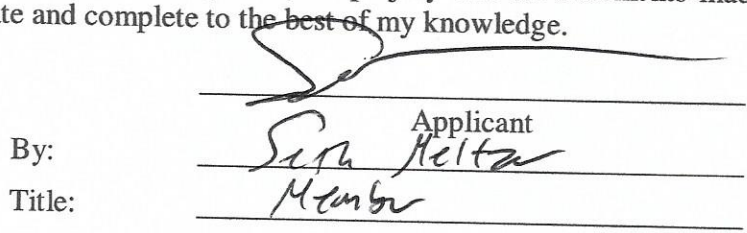 te and complete to the best of my knowledge.
Applicant
By: Seth
Title: Member